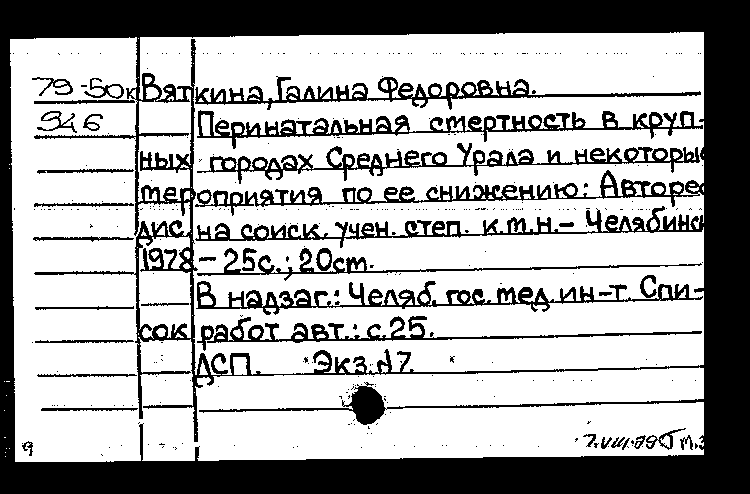 79-50к Вяткина, Галина Федоровна.
946 Перинатальная смертность в круп-
ных городах Среднего Урала и некоторые
мероприятия по ее снижению: Авторе
дис. на соиск. учен. степ. к.м.н.- Челябинск
1978 - 25с.; 20см.
В надзаг.: Челяб. гос. мед. ин-т. Спи-
сок работ авт.: с.25.
ДСП. Экз.№7.
9 7.VIII.79